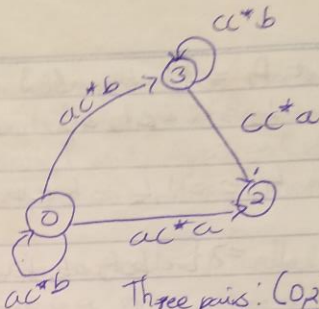 cc*b
3
ac*b
cc*a
0
2
ac*a
ac*b
Three pairs: (0,2